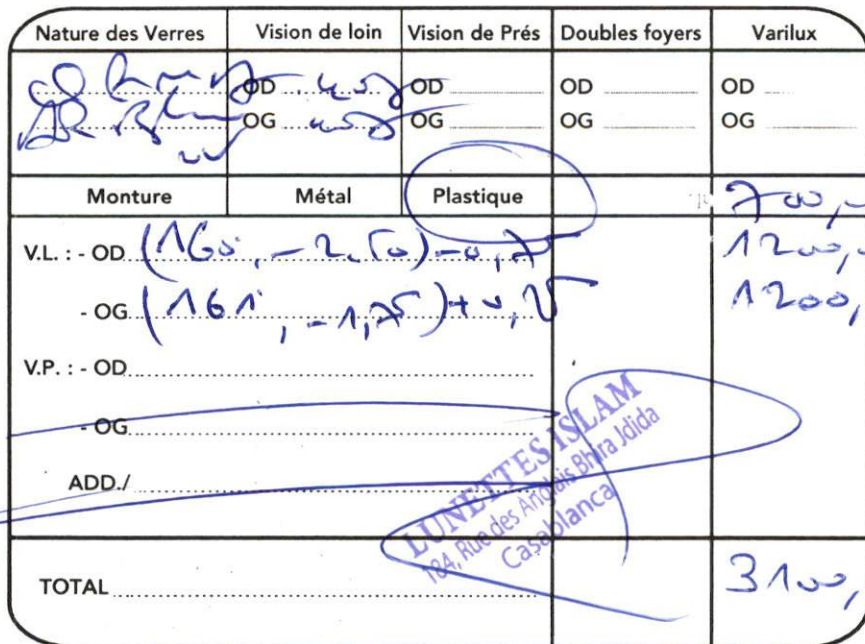 Nature des Verres Vision de loin Vision de Prés Doubles foyers Varilux
OD OD OD OD
OG OG OG OG
Monture Métal Plastique 700,
V.L. : - OD (160, -2.50) -0,75 1200,
- OG (161, -1,75) +0,25 1200,
V.P. : - OD
- OG
ADD./
LUNETTES ISLAM
184, Rue des Anglais Bhira Jdida
Casablanca
TOTAL 3100,